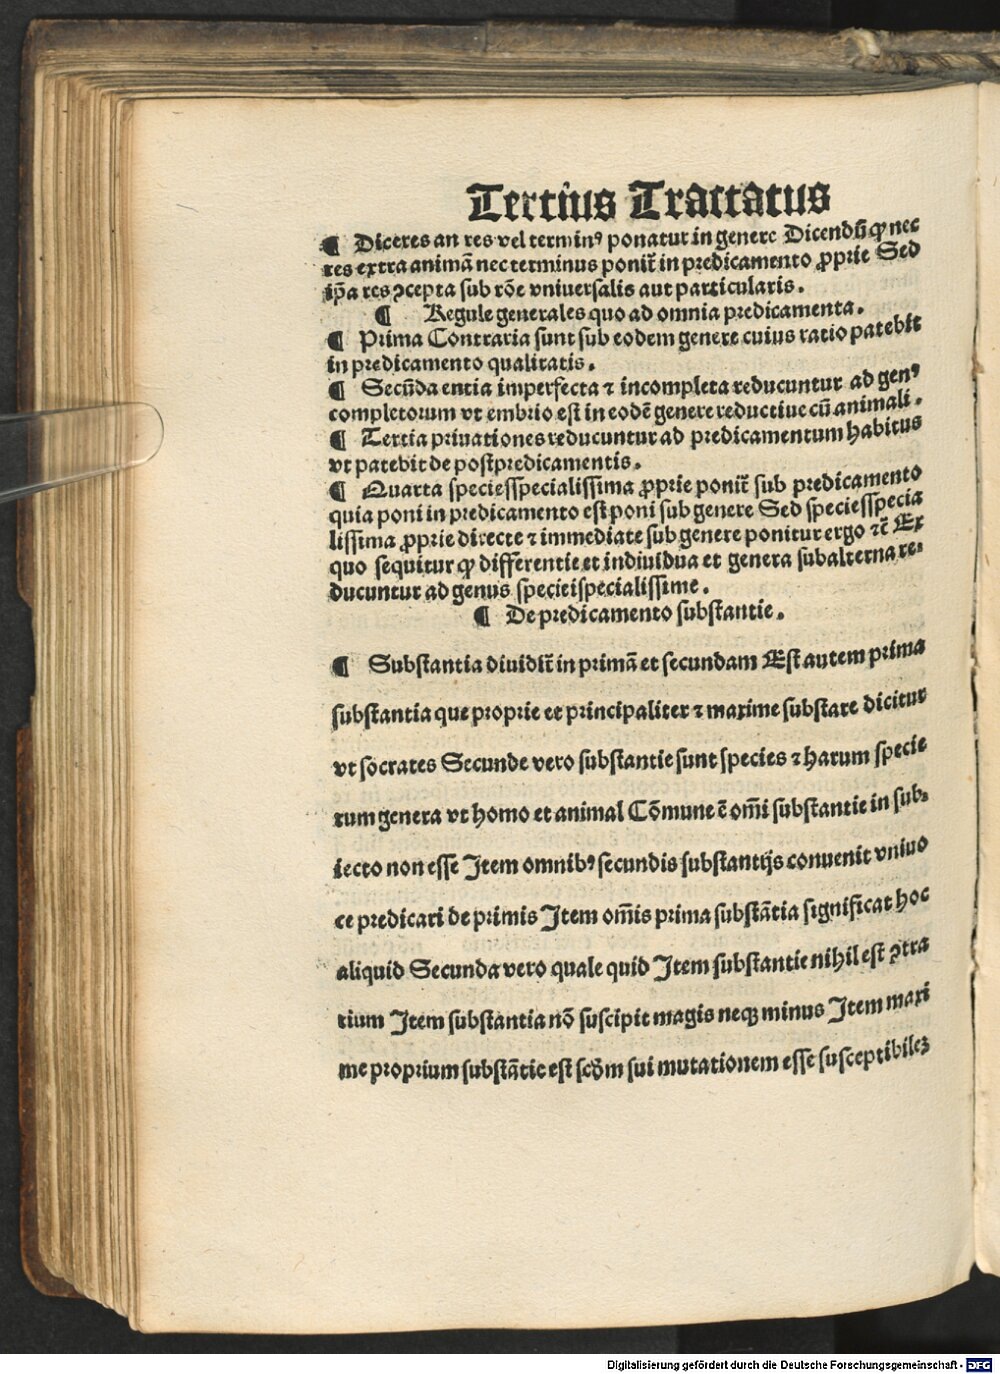 Tertius Tractatus
¶ Diceres an res vel terminꝰ ponatur in genere Dicendū ꝙ nec
res extra animā nec terminus ponit̄ in predicamento ꝓprie Sed
ip̄a res ꝯcepta sub rōe vniuersalis aut particularis.
¶ Regule generales quo ad omnia predicamenta.
¶ Prima Contraria sunt sub eodem genere cuius ratio patebit
in predicamento qualitatis.
¶ Secūda entia imperfecta ⁊ incompleta reducuntur ad genꝰ
completorum vt embrio est in eodē genere reductiue cū animali.
¶ Tertia priuationes reducuntur ad predicamentum habitus
vt patebit de postpredicamentis.
¶ Quarta speciesspecialissima ꝓprie ponit̄ sub predicamento
quia poni in predicamento est poni sub genere Sed speciesspecia
lissima ꝓprie directe ⁊ immediate sub genere ponitur ergo ⁊c̄ Ex
quo sequitur ꝙ differentie et indiuidua et genera subalterna re⸗
ducuntur ad genus specieispecialissime.
¶ De predicamento substantie.
¶ Substantia diuidit̄ in primā et secundam Est autem prima
substantia que proprie et principaliter ⁊ maxime substare dicitur
vt socrates Secunde vero substantie sunt species ⁊ harum specie
rum genera vt homo et animal Cōmune ē om̄i substantie in sub⸗
iecto non esse Item omnibꝰ secundis substantijs conuenit vniuo
ce predicari de primis Item om̄is prima substātia significat hoc
aliquid Secunda vero quale quid Item substantie nihil est ꝯtra
rium Item substantia nō suscipit magis neqꝫ minus Item maxi
me proprium substātie est scd̄m sui mutationem esse susceptibileꝫ
Digitalisierung gefördert durch die Deutsche Forschungsgemeinschaft - DFG